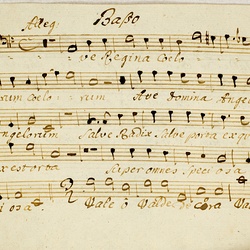 Alleg: Basso
ve Regina Coelo
rum coelo rum Ave Domina Ange
ngelorum Salve Radix Salve porta ex
ex est orta Super omnes Speci o sa
osa. Vale o Valde De cora Va